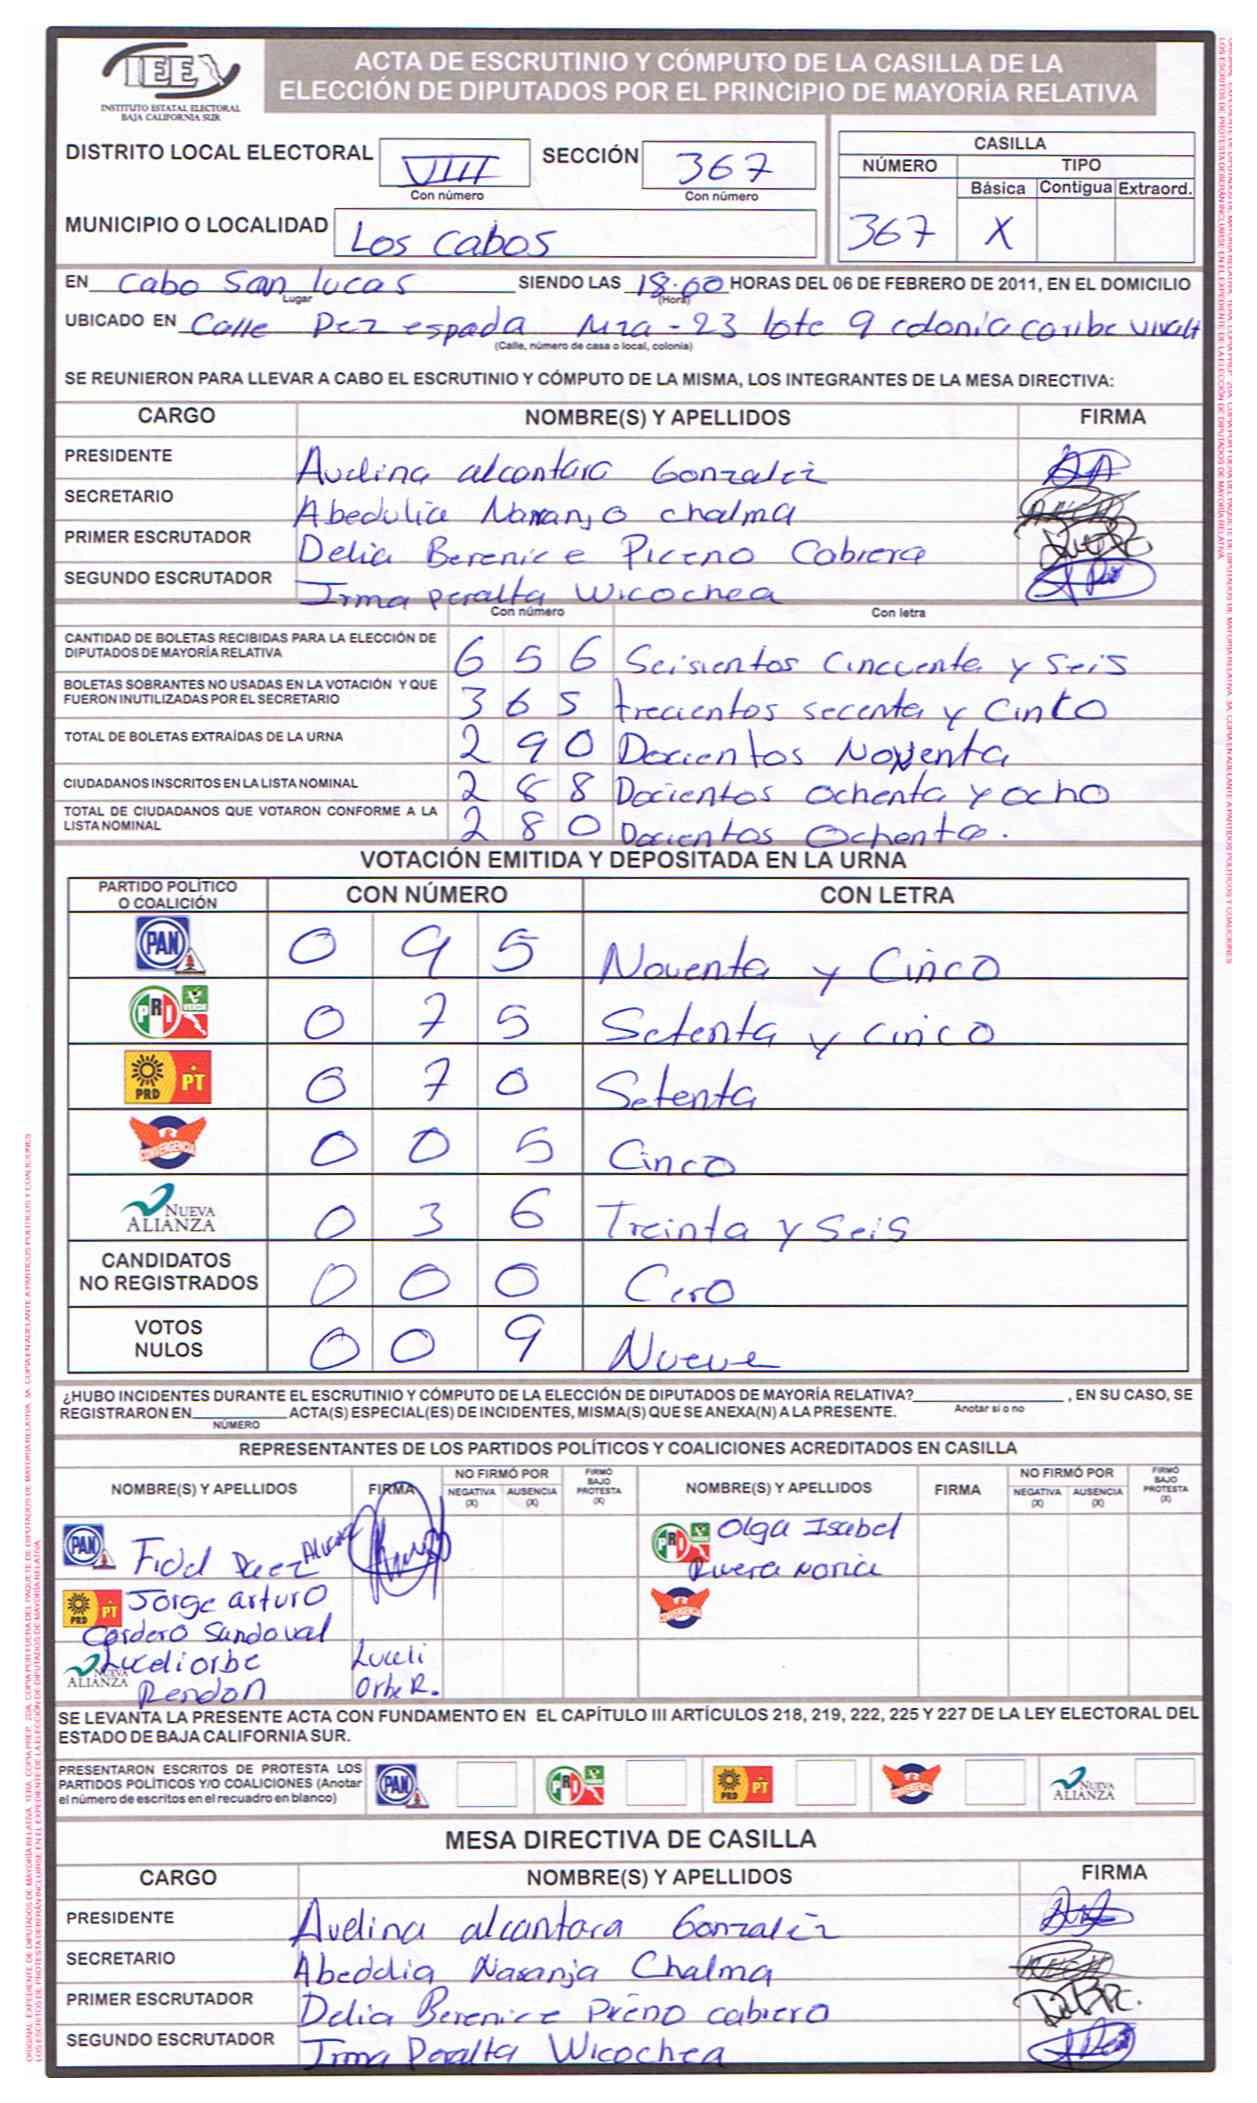 IEE
INSTITUTO ESTATAL ELECTORAL
BAJA CALIFORNIA SUR
ACTA DE ESCRUTINIO Y CÓMPUTO DE LA CASILLA DE LA
ELECCIÓN DE DIPUTADOS POR EL PRINCIPIO DE MAYORÍA RELATIVA
DISTRITO LOCAL ELECTORAL VIII SECCIÓN 367
Con número Con número
MUNICIPIO O LOCALIDAD Los Cabos
CASILLA
NÚMERO TIPO
Básica Contigua Extraord.
367 X
EN Cabo San lucas SIENDO LAS 18:00 HORAS DEL 06 DE FEBRERO DE 2011, EN EL DOMICILIO
Lugar (Hora)
UBICADO EN Calle Pez espada Mza-23 lote 9 colonia caribe
(Calle, número de casa o local, colonia)
SE REUNIERON PARA LLEVAR A CABO EL ESCRUTINIO Y CÓMPUTO DE LA MISMA, LOS INTEGRANTES DE LA MESA DIRECTIVA:
CARGO NOMBRE(S) Y APELLIDOS FIRMA
PRESIDENTE Avelina alcantara Gonzalez
SECRETARIO Abedulia Naranjo chalma
PRIMER ESCRUTADOR Delia Berenice Piceno Cabrera
SEGUNDO ESCRUTADOR Irma peralta Wicochea
Con número Con letra
CANTIDAD DE BOLETAS RECIBIDAS PARA LA ELECCIÓN DE
DIPUTADOS DE MAYORÍA RELATIVA 656 Seisientos Cincuenta y seis
BOLETAS SOBRANTES NO USADAS EN LA VOTACIÓN Y QUE
FUERON INUTILIZADAS POR EL SECRETARIO 365 trecientos secenta y Cinco
TOTAL DE BOLETAS EXTRAÍDAS DE LA URNA 290 Docientos Noventa
CIUDADANOS INSCRITOS EN LA LISTA NOMINAL 288 Docientos ochenta y ocho
TOTAL DE CIUDADANOS QUE VOTARON CONFORME A LA
LISTA NOMINAL 280 Docientos Ochenta.
VOTACIÓN EMITIDA Y DEPOSITADA EN LA URNA
PARTIDO POLÍTICO
O COALICIÓN CON NÚMERO CON LETRA
PAN 095 Noventa y Cinco
PRI VERDE 075 Setenta y cinco
PRD PT 070 Setenta
CONVERGENCIA 005 Cinco
NUEVA ALIANZA 036 Treinta y seis
CANDIDATOS
NO REGISTRADOS 000 Cero
VOTOS
NULOS 009 Nueve
¿HUBO INCIDENTES DURANTE EL ESCRUTINIO Y CÓMPUTO DE LA ELECCIÓN DE DIPUTADOS DE MAYORÍA RELATIVA? , EN SU CASO, SE
REGISTRARON EN ACTA(S) ESPECIAL(ES) DE INCIDENTES, MISMA(S) QUE SE ANEXA(N) A LA PRESENTE. Anotar si o no
NÚMERO
REPRESENTANTES DE LOS PARTIDOS POLÍTICOS Y COALICIONES ACREDITADOS EN CASILLA
NOMBRE(S) Y APELLIDOS FIRMA NO FIRMÓ POR NEGATIVA (X) AUSENCIA (X) FIRMÓ BAJO PROTESTA (X) NOMBRE(S) Y APELLIDOS FIRMA NO FIRMÓ POR NEGATIVA (X) AUSENCIA (X) FIRMÓ BAJO PROTESTA (X)
PAN PRI VERDE Olga Isabel
Rivera Noria
PRD PT Jorge arturo CONVERGENCIA
Cordero Sandoval
NUEVA ALIANZA Luceli orbe Luceli
Rendon Orbe R.
SE LEVANTA LA PRESENTE ACTA CON FUNDAMENTO EN EL CAPÍTULO III ARTÍCULOS 218, 219, 222, 225 Y 227 DE LA LEY ELECTORAL DEL
ESTADO DE BAJA CALIFORNIA SUR.
PRESENTARON ESCRITOS DE PROTESTA LOS
PARTIDOS POLÍTICOS Y/O COALICIONES (Anotar
el número de escritos en el recuadro en blanco) PAN PRI VERDE PRD PT CONVERGENCIA NUEVA ALIANZA
MESA DIRECTIVA DE CASILLA
CARGO NOMBRE(S) Y APELLIDOS FIRMA
PRESIDENTE Avelina alcantara Gonzalez
SECRETARIO Naranja Chalma
PRIMER ESCRUTADOR Delia Berenice cabrero
SEGUNDO ESCRUTADOR Irma Peralta Wicochea